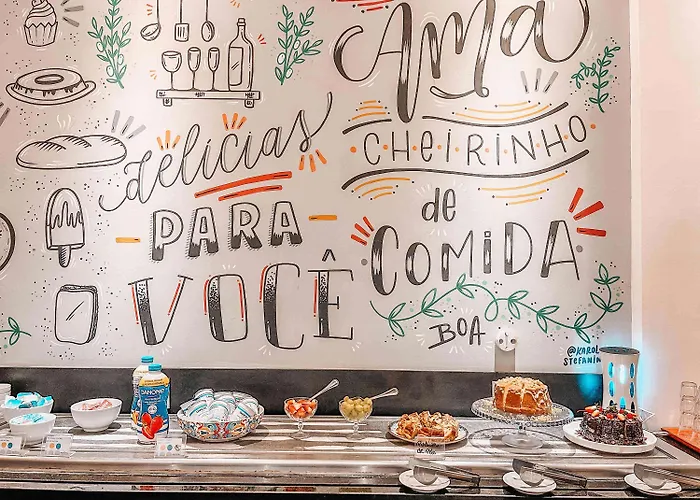 delícias
PARA
VOCÊ
Ama
CHEiRiNHO
de
COMiDA
BOA
@KAROL
STEFANINI
DANONE